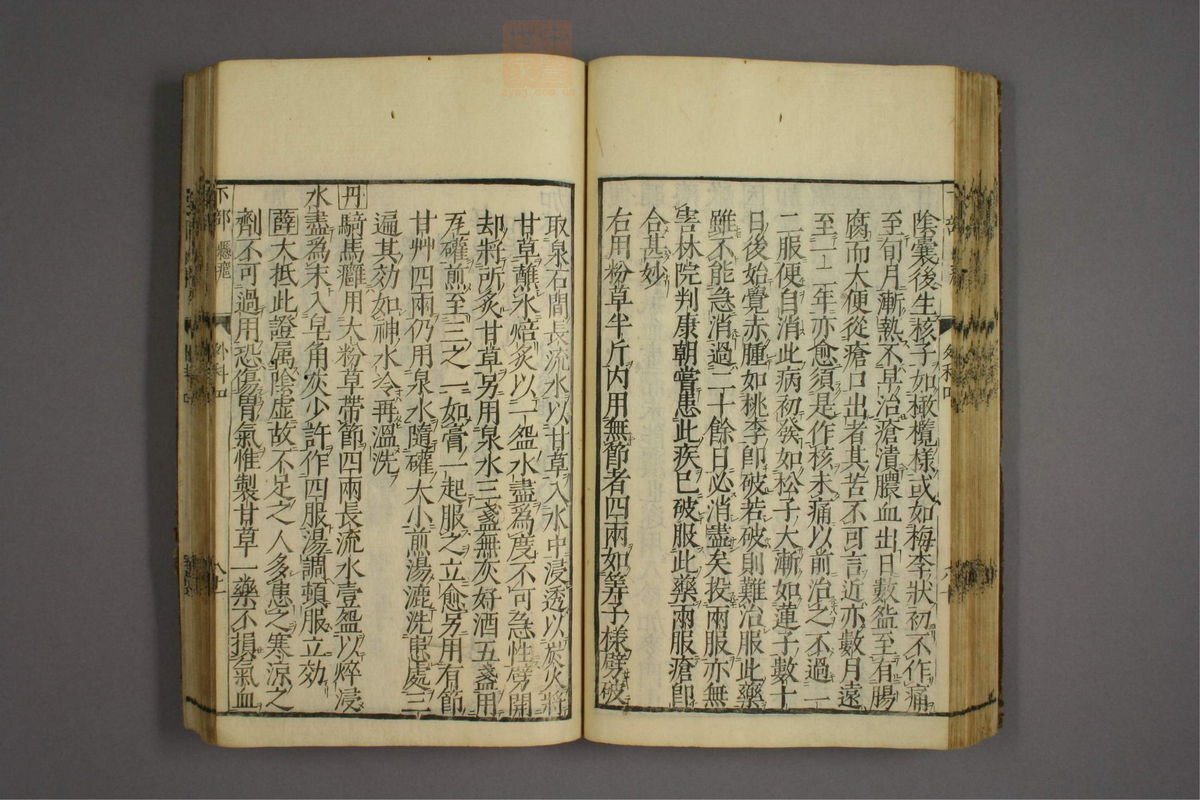 陰囊後生核子如橄欖樣或如梅李狀初不作痛
至旬月漸熟不早治瘡潰膿血出日數盆至有腸
腐而大便從瘡口出者其苦不可言近亦數月遠
至一二年亦愈須是作核未痛以前治之不過一
二服便自消此病初發如松子大漸如蓮子數十
日後始覺赤腫如桃李卽破若破則難治服此藥
雖不能急消過二十餘日必消盡矣投兩服亦無
害林院判康朝嘗患此疾已破服此藥兩服瘡卽
合甚妙
右用粉草半斤内用無節者四兩如筭子樣劈破
取泉石間長流水以甘草入水中浸透以炭火將
甘草蘸水焙炙以一盌水盡爲度不可急性劈開
却將所炙甘草另用泉水三盞無灰好酒五盞用
瓦礶煎至三之一如膏一起服之立愈另用有節
甘艸四兩仍用泉水隨礶大小煎湯漉洗患處三
遍其効如神水冷再溫洗
丹騎馬癰用大粉草帶節四兩長流水壹盌以焠浸
水盡爲末入皂角灰少許作四服湯調頓服立効
薛大抵此證属陰虛故不足之人多患之寒涼之
劑不可過用恐傷胃氣惟製甘草一藥不損氣血
下部 懸癰 外科四